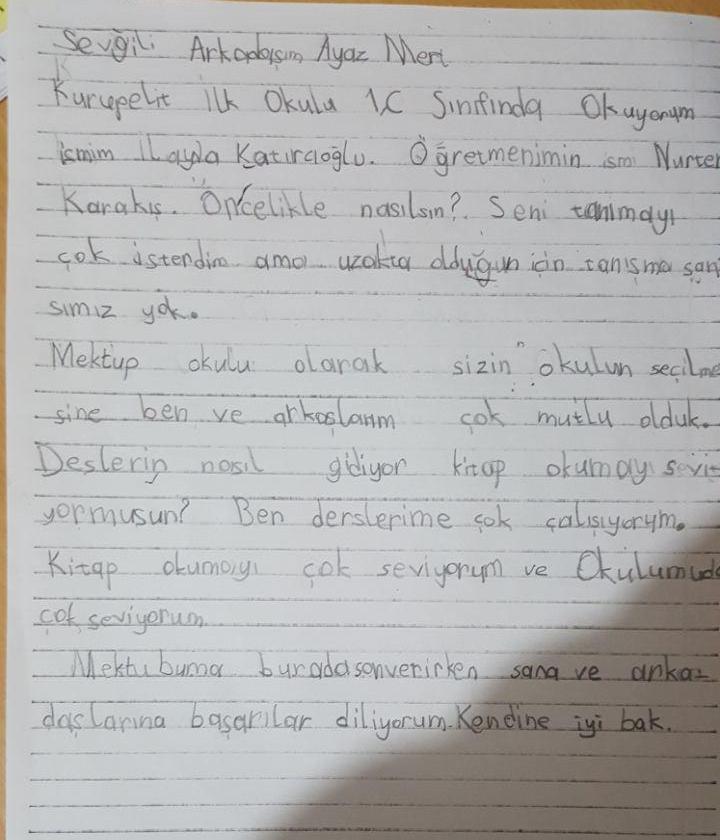 Sevgili Arkadaşım Ayaz Mert
Kurupelit ilk Okulu 1C Sınıfında Okuyorum
ismim İlayda Katırcıoğlu. Öğretmenimin ismi Nurten
Karakış. Öncelikle nasılsın?. Seni tanımayı
çok istendim ama uzakta olduğun için tanışma şan
sımız yok.
Mektup okulu olarak sizin okulun seçilme
sine ben ve arkaşlarım çok mutlu olduk.
Deslerin nasıl gidiyor kitap okumayı sevi-
yormusun? Ben derslerime çok çalışıyorum.
Kitap okumayı çok seviyorum ve Okulumuda
çok seviyorum
Mektubuma buradasonverirken sana ve arka-
daşlarına başarılar diliyorum. Kendine iyi bak.